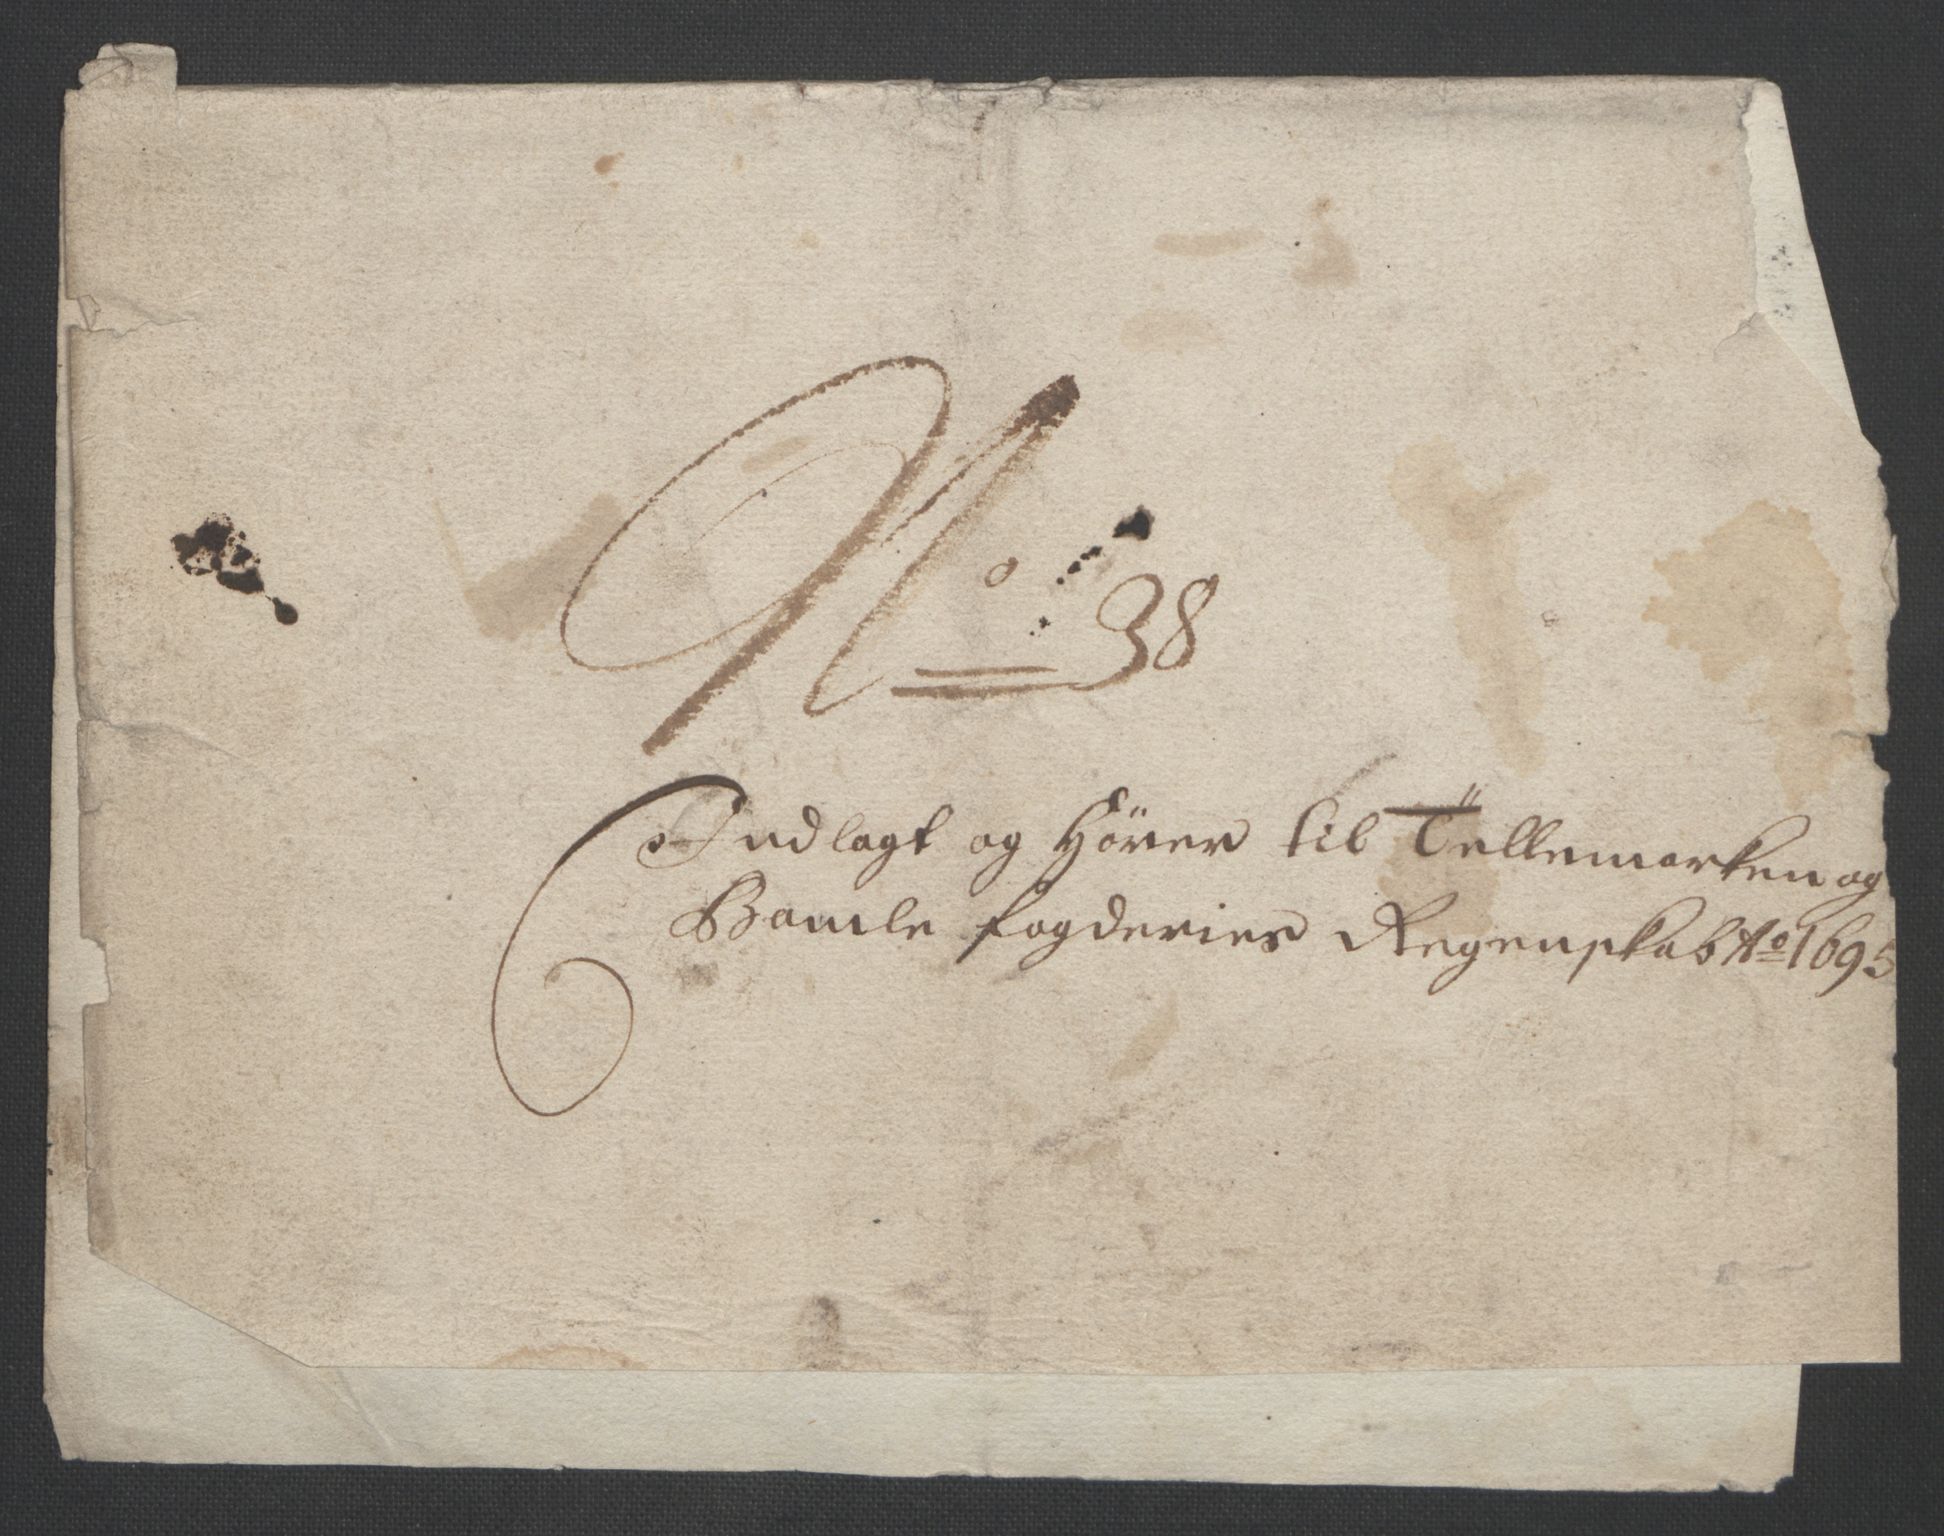 No 38
Indlagt og Hörer til Tellemarken og
Bamle fogderies Regenskab Ao 1695